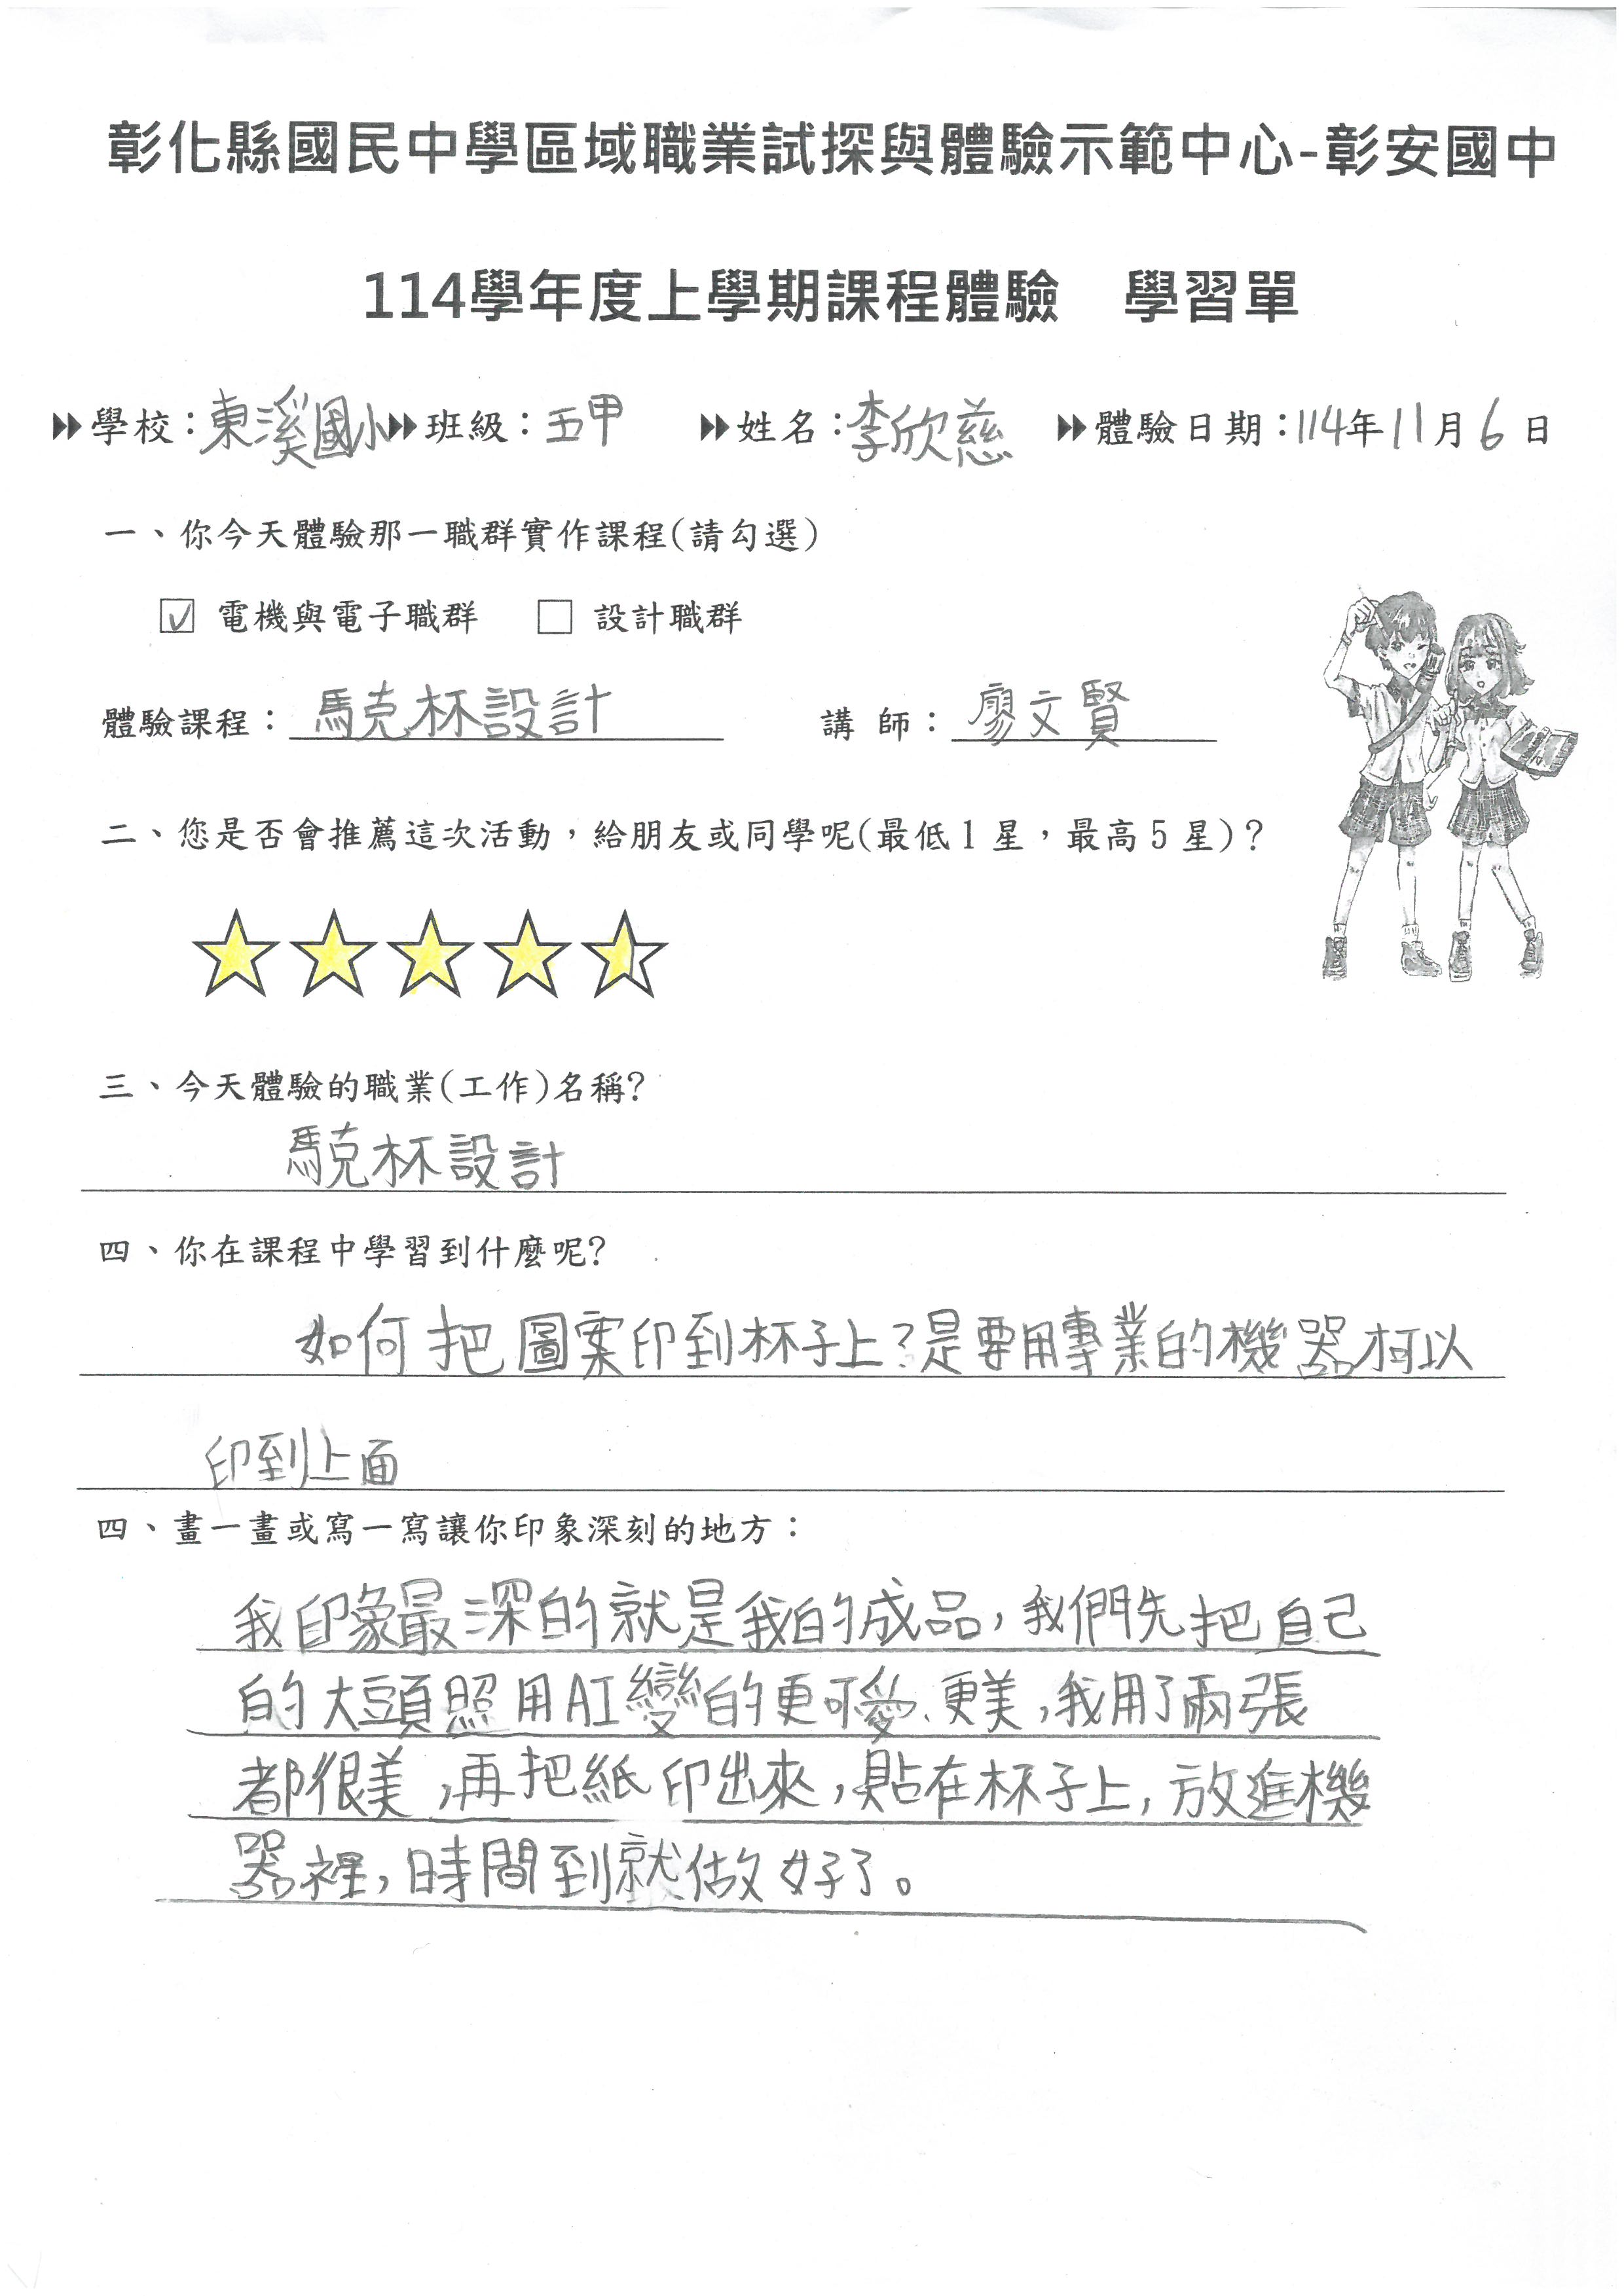 彰化縣國民中學區域職業試探與體驗示範中心-彰安國中
114學年度上學期課程體驗 學習單
學校：東溪國小 班級：五甲 姓名：李欣慈 體驗日期：114年11月6日
一、你今天體驗那一職群實作課程(請勾選)
☑ 電機與電子職群 □ 設計職群
體驗課程：馬克杯設計 講 師：廖文賢
二、您是否會推薦這次活動，給朋友或同學呢(最低1星，最高5星)？
三、今天體驗的職業(工作)名稱?
馬克杯設計
四、你在課程中學習到什麼呢?
如何把圖案印到杯子上?是要用專業的機器柯以
印到上面
四、畫一畫或寫一寫讓你印象深刻的地方：
我印象最深的就是我的成品，我們先把自己
的大頭照用AI變的更可愛、更美，我用了兩張
都很美，再把紙印出來，貼在杯子上，放進機
器裡，時間到就做好了。